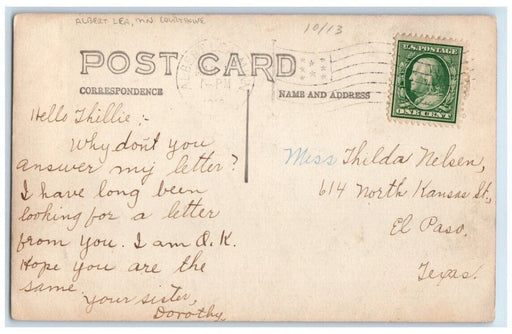 ALBERT LEA, MN COURTHOUSE
10/13
U.S. POSTAGE
ONE CENT
POST CARD
CORRESPONDENCE
NAME AND ADDRESS
Hello Thillie :-
Why don't you
answer my letter?
I have long been
looking for a letter
from you. I am O.K.
Hope you are the
same.
Your sister,
Dorothy.
Miss Thilda Nelsen,
614 North Kansas St.,
El Paso,
Texas.